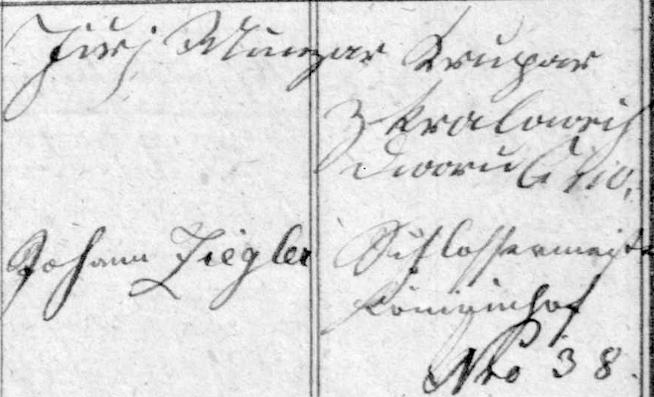 Jiřj Munzar Krupar
z Kralowých
Dworu
Johann Ziegler Schlossermeister
Königinhof
Nro 38.